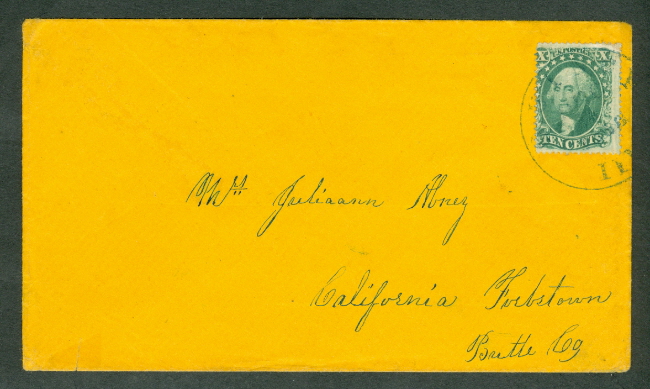 X U.S. POSTAGE X
TEN CENTS
Mrs. Juliaann Abney
California Forbstown
Butte Co